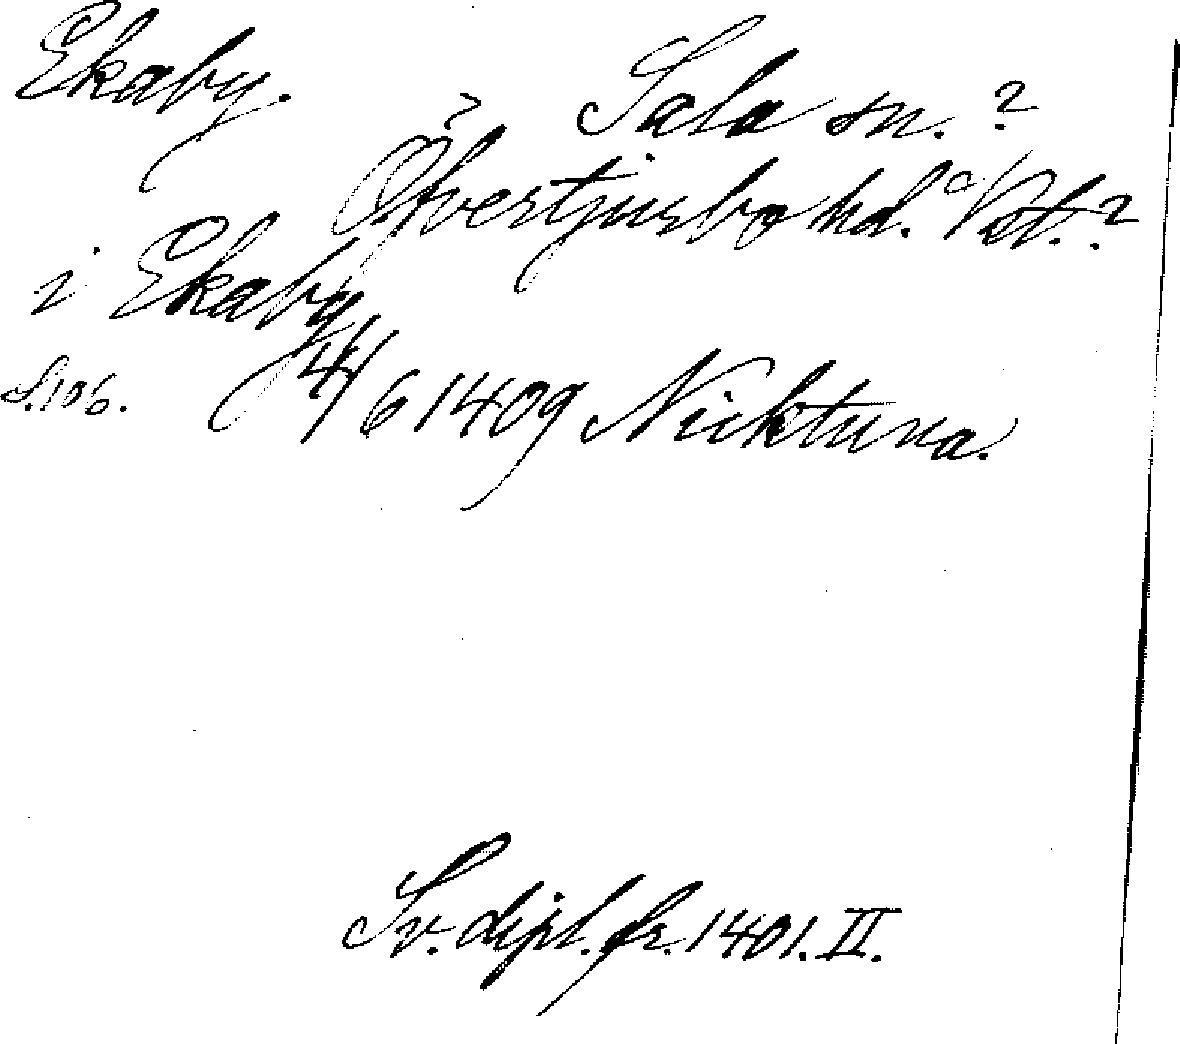 Ekaby. Sala sn. ?
? Öfvertjurbo hd. Vst. ?
i Ekaby
S. 106. 4/6 1409 Nicktuna.
Sv. dipl. fr. 1401. II.